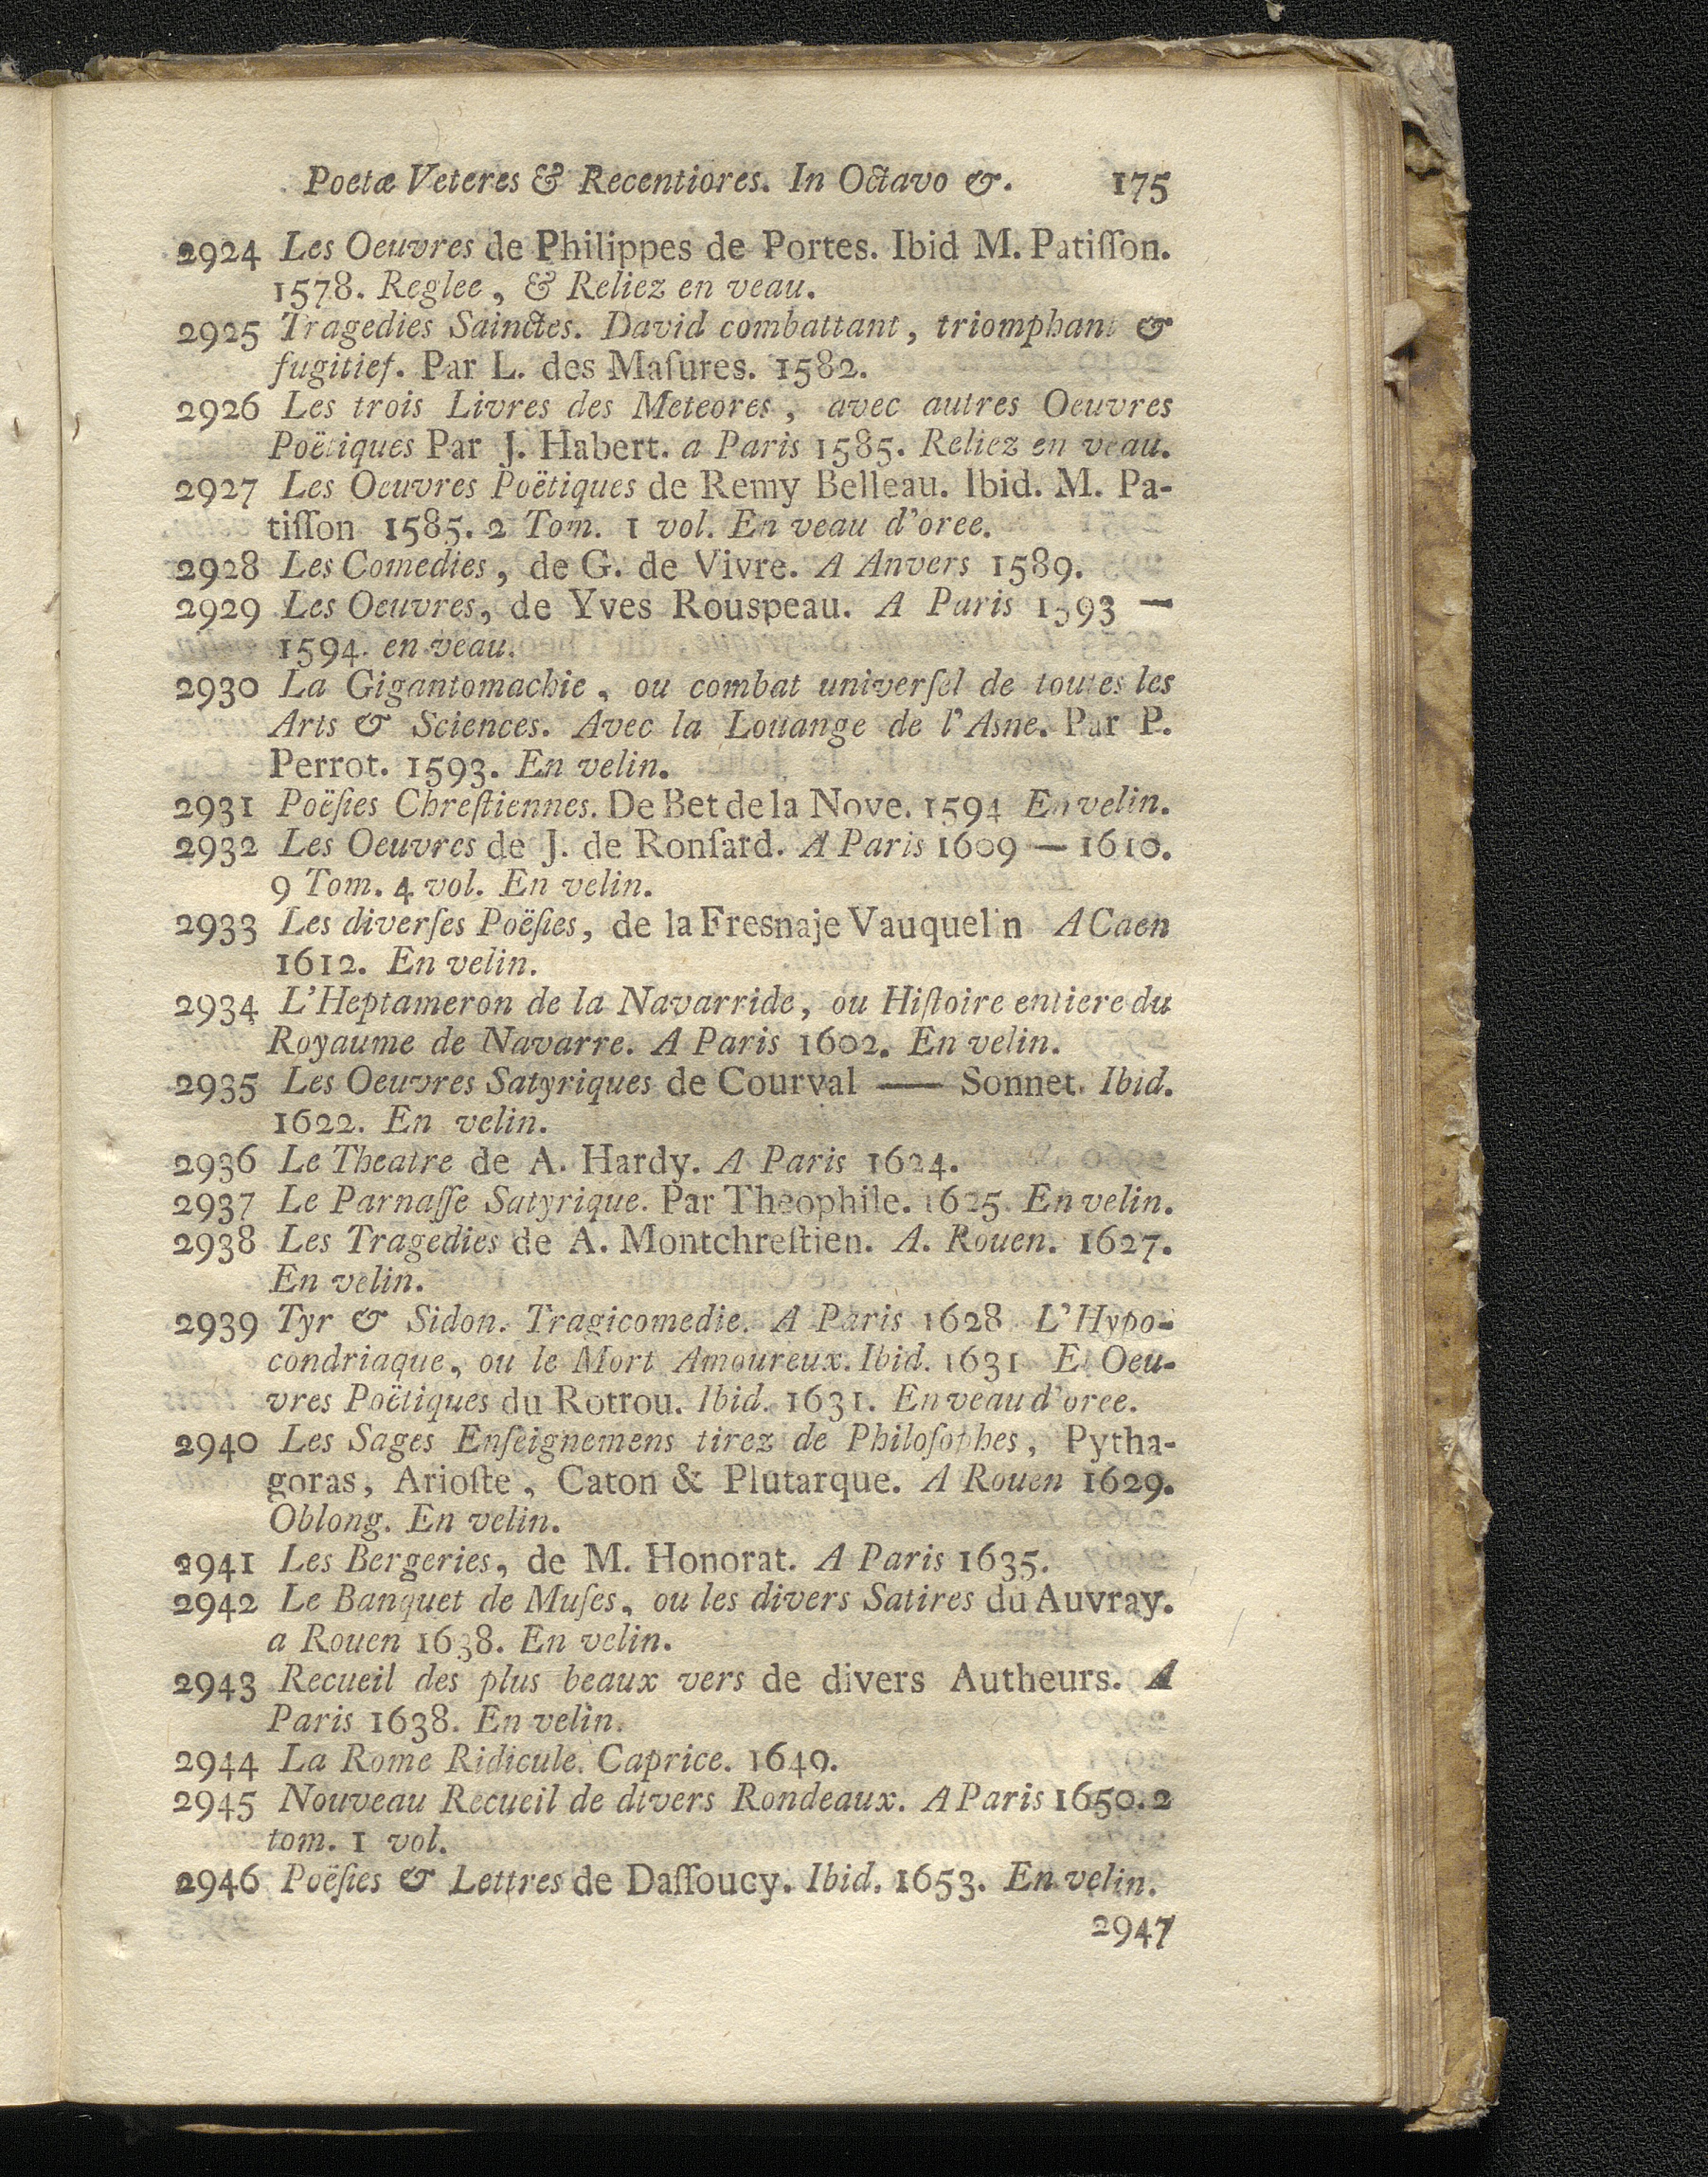 Poetæ Veteres & Recentiores. In Octavo &. 175
2924 Les Oeuvres de Philippes de Portes. Ibid M. Patiſſon.
1578. Reglee, & Reliez en veau.
2925 Tragedies Sainctes. David combattant, triomphant &
fugitief. Par L. des Maſures. 1582.
2926 Les trois Livres des Meteores, avec autres Oeuvres
Poëtiques Par J. Habert. a Paris 1585. Reliez en veau.
2927 Les Oeuvres Poëtiques de Remy Belleau. Ibid. M. Pa-
tiſſon 1585. 2 Tom. 1 vol. En veau d'oree.
2928 Les Comedies, de G. de Vivre. A Anvers 1589.
2929 Les Oeuvres, de Yves Rouspeau. A Paris 1593 —
1594. en veau.
2930 La Gigantomachie, ou combat univerſel de toutes les
Arts & Sciences. Avec la Louange de l'Asne. Par P.
Perrot. 1593. En velin.
2931 Poëſies Chreſtiennes. De Bet de la Nove. 1594 En velin.
2932 Les Oeuvres de J. de Ronſard. A Paris 1609 — 1610.
9 Tom. 4 vol. En velin.
2933 Les diverſes Poëſies, de la Fresnaje Vauquelin A Caen
1612. En velin.
2934 L'Heptameron de la Navarride, ou Hiſtoire entiere du
Royaume de Navarre. A Paris 1602. En velin.
2935 Les Oeuvres Satyriques de Courval — Sonnet. Ibid.
1622. En velin.
2936 Le Theatre de A. Hardy. A Paris 1624.
2937 Le Parnaſſe Satyrique. Par Theophile. 1625. En velin.
2938 Les Tragedies de A. Montchreſtien. A. Rouen. 1627.
En velin.
2939 Tyr & Sidon. Tragicomedie. A Paris 1628 L'Hypo-
condriaque, ou le Mort Amoureux. Ibid. 1631 Et Oeu-
vres Poëtiques du Rotrou. Ibid. 1631. En veau d'oree.
2940 Les Sages Enſeignemens tirez de Philoſophes, Pytha-
goras, Arioſte, Caton & Plutarque. A Rouen 1629.
Oblong. En velin.
2941 Les Bergeries, de M. Honorat. A Paris 1635.
2942 Le Banquet de Muſes, ou les divers Satires du Auvray.
a Rouen 1638. En velin.
2943 Recueil des plus beaux vers de divers Autheurs. A
Paris 1638. En velin.
2944 La Rome Ridicule. Caprice. 1649.
2945 Nouveau Recueil de divers Rondeaux. A Paris 1650. 2
tom. 1 vol.
2946 Poëſies & Lettres de Daſſoucy. Ibid. 1653. En velin.
2947